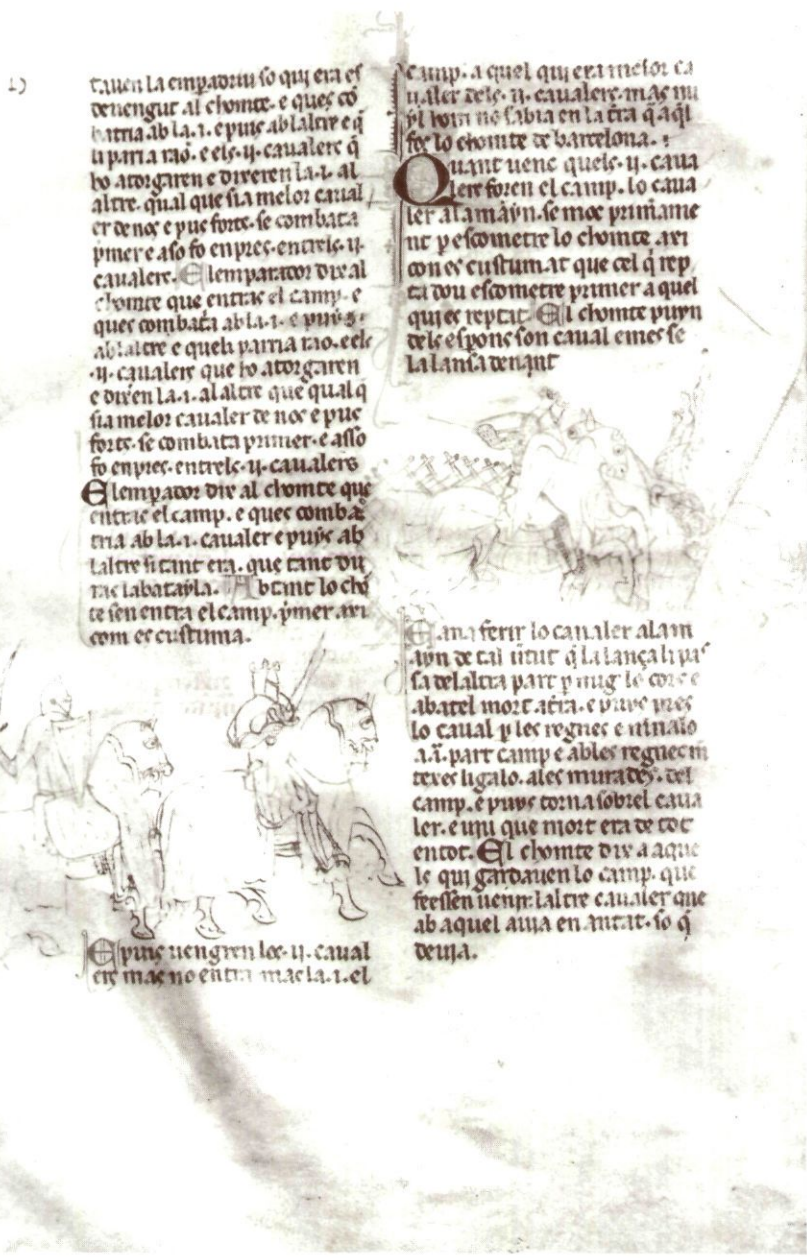 tauen la emperadriu so qui era es
deuengut al chomte. e ques cō
batria ab la .i. e puis ab laltre e q̄
li patria raō. e els .ij. caualers q̄
ho atorgaren e dixeren la .i. al
altre. qual que sia melor caual
er de nos e pus forts. se combata
p̄mer e aso fo enpres. entrels .ij.
caualers. El emperator dix al
chomte que entras el camp. e
ques combata ab la .i. e puys
ab laltre e queli patria rao. e els
.ij. caualers que ho atorgaren
e dixen la .i. al altre que qual q̄
sia melor caualer de nos e pus
forts. se combata primer. e asso
fo enpres. entrels .ij. caualers
El emperator dix al chomte que
entras el camp. e ques comba
tria ab la .i. caualer e puys ab
laltre si tant era. que tant du
ras la batayla. Ab tant lo chō
te sen entra el camp. p̄mer axi
com es custuma.
E puis uengren los .ij. caual
ers mas no entra mas la .i. el
camp. a quel qui era melor ca
ualer dels .ij. caualers. mas nu
yl hom no sabia en la t̄ra q̄ aq̄l
fos lo chomte de barcelona.
Quant uenc quels .ij. caua
lers foren el camp. lo caua
ler alamayn. se moc primame
nt p escometre lo chomte. axi
con es custumat que cel q̄ rep
ta dou escometre primer a quel
qui es reptat. El chomte puyn
dels espons son caual e mes se
la lansa denant
E ana ferir lo caualer alam
ayn de tal u̇tut q̄ la lança li pas
sa delaltra part p mig lo cors e
abatel mort at̄ra. e puys pres
lo caual p les regnes e ninalo
a .i. part camp e ab les regnes m̄
texes ligalo. ales murades. del
camp. e puys torna sobrel caua
ler. e uiu que mort era de tot
en tot. El chomte dix a aque
ls qui gardauen lo camp. que
feessen uenir. laltre caualer que
ab aquel auia en antat. so q̄
deuia.